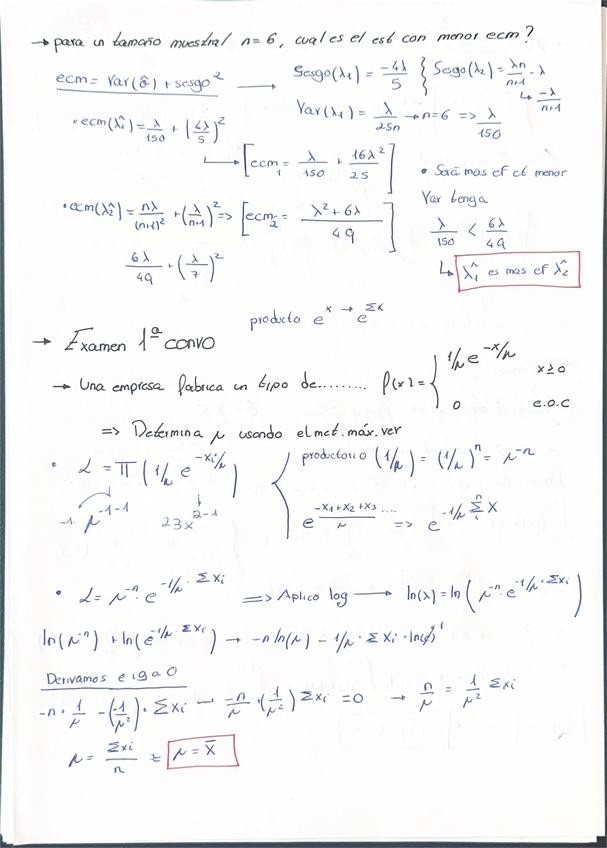 → para un tamaño muestral n=6, cual es el est con menor ecm?
ecm = Var(θ̂) + sesgo² → Sesgo(λ₁) = -4λ/5 { Sego(λ₂) = λn/n+1 - λ
↳ -λ/n+1
Var(λ₁) = λ/25n → n=6 => λ/150
• ecm(λ̂₁) = λ/150 + (4λ/5)²
↳ [ecm₁ = λ/150 + 16λ²/25]
• Será mas ef el menor
Var tenga
λ/150 < 6λ/49
↳ λ̂₁ es mas ef λ̂₂
• ecm(λ̂₂) = nλ/(n+1)² + (λ/n+1)² => [ecm₂ = λ²+6λ/49]
6λ/49 + (λ/7)²
producto eˣ → e^Σx
→ Examen 1ª convo
→ Una empresa fabrica un tipo de......... f(x) = { 1/μ e^-x/μ x≥0
0 e.o.c
=> Determina μ usando el met. máx. ver
• L = Π (1/μ e^-xi/μ)
productorio (1/μ) = (1/μ)ⁿ = μ⁻ⁿ
-1· μ^-1-1 23x^2-1
e^-x1+x2+x3..../μ => e^-1/μ Σⁿᵢ X
• L = μ⁻ⁿ · e^-1/μ · Σxi => Aplico log → ln(λ) = ln(μ⁻ⁿ · e^-1/μ · Σxi)
ln(μ⁻ⁿ) + ln(e^-1/μ · Σxi) → -n ln(μ) - 1/μ · Σxi · ln(e)¹
Derivamos e igao
-n · 1/μ - (-1/μ²) · Σxi → -n/μ · (1/μ²) Σxi = 0 → n/μ = 1/μ² Σxi
μ = Σxi/n ≈ μ = x̄